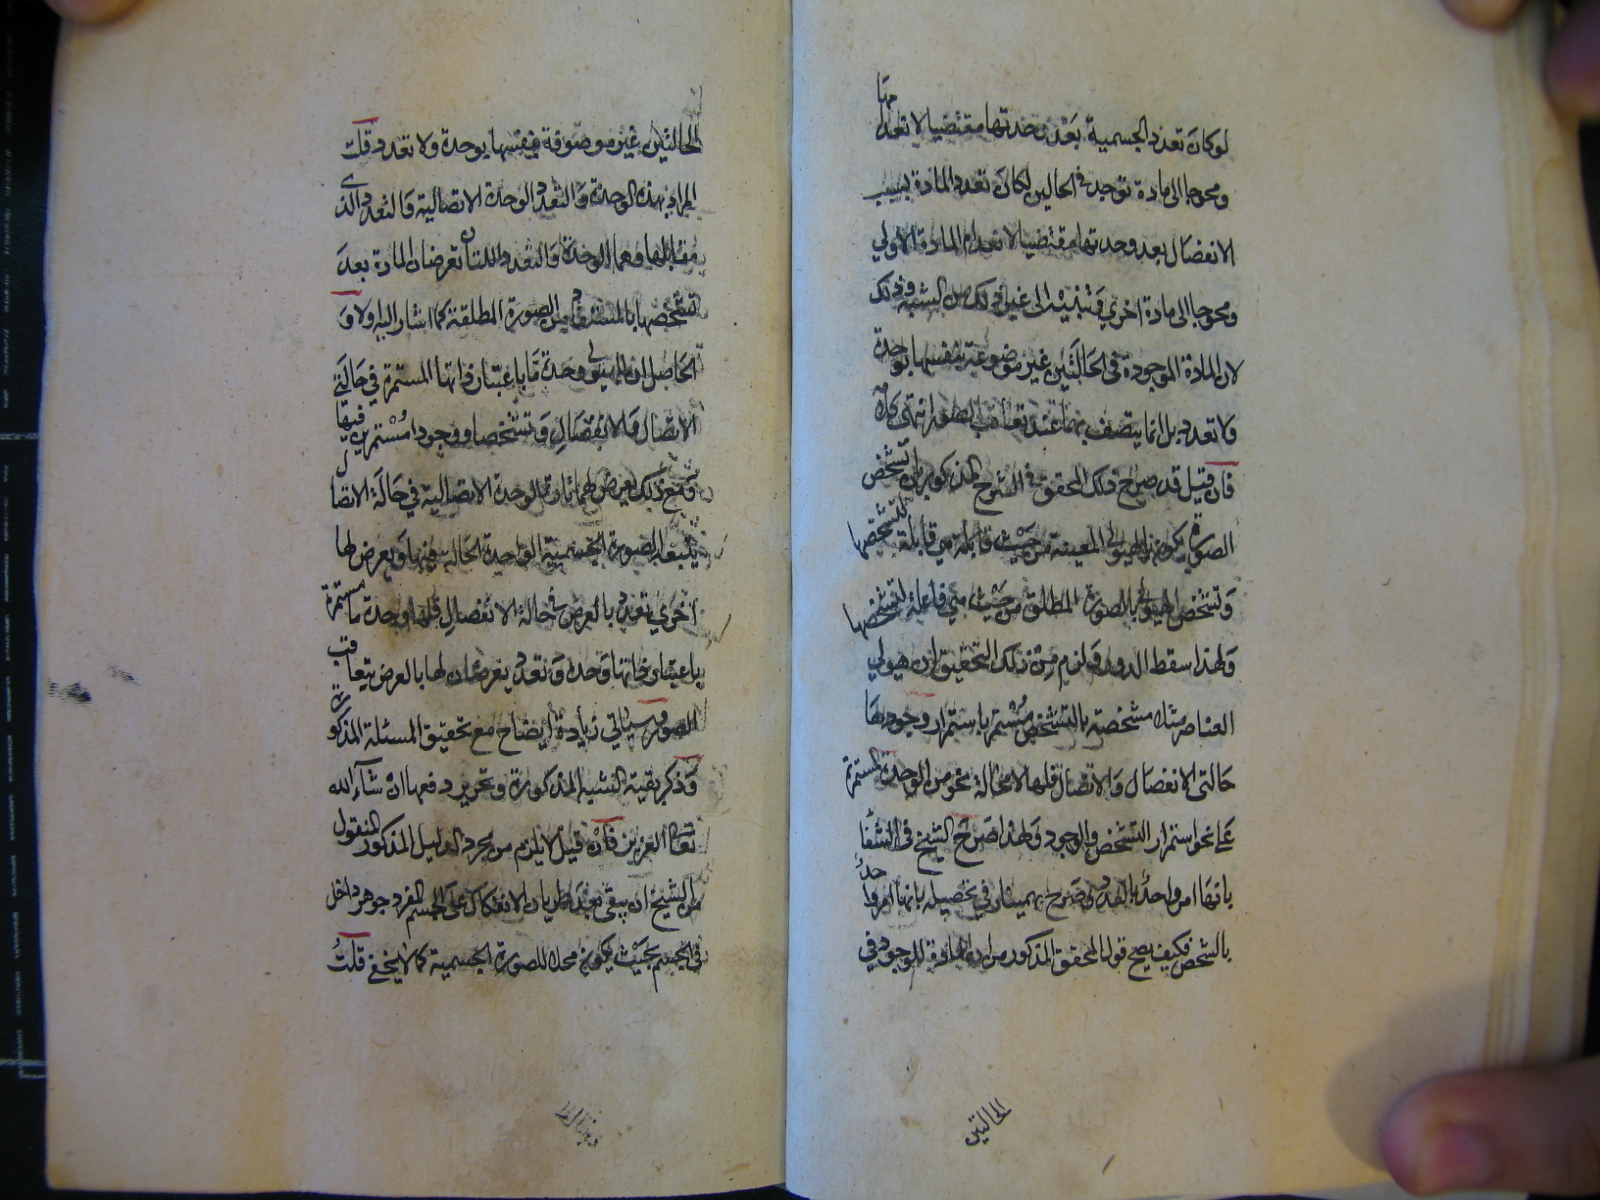 لو كان تعدد الجسمية بعد وحدتها مقتضيا لانعدامها
ومحوجا الى مادة توجد في الحالين لكان تعدد المادة بسبب
الانفصال بعد وحدتها مقتضيا لانعدام المادة الاولي
ومحوجا الى مادة اخري فتنبيه الى غير ذلك من الشبه وذلك
لان المادة الموجودة في الحالتين غير موضوعة بنفسها بوحدة
ولا تعدد بل انما يتصف بهما عند تعاقب الصور انتهى كلامه
فان قيل قد صرح ذلك المحقق في الشرح المذكور بان تشخص
الصورة يكون بالهيولى المعينة من حيث هي قابلة لتشخصها
وتشخص الهيولى بالصورة المطلقة من حيث هي فاعلة لتشخصها
ولهذا سقط الدور ولزم من ذلك التحقيق ان هيولي
العناصر مثلا مشخصة بالتشخص مستمر باستمرار وجودها
حالتى الانفصال والاتصال فلها لا محالة نحو من الوحدة المستمرة
على نحو استمرار التشخص والوجود ولهذا صرح الشيخ في الشفا
بانها امر واحد بالعدد وصرح بهمنيار في تحصيله بانها امر واحد
بالشخص فكيف يصح قول المحقق المذكور من ان المادة الموجودة في
الحالتين
الحالتين غير موصوفة بنفسها بوحدة ولا تعدد قلت
المراد بهذه الوحدة والتعدد الوحدة الاتصالية والتعدد الذى
مقابلها وهما الوحدة والتعدد اللتان تعرضان المادة بعد
تشخصها بالمستفاد من الصورة المطلقة كما اشار اليه اولا و
الحاصل ان للهيولى وحدة ما باعتبار ذاتها المستمرة في حالتي
الاتصال والانفصال وتشخصا ووجودا مستمرين فيها
ومع ذلك يعرض لها تارة الوحدة الاتصالية في حالة الاتصال
بتبعية الصورة الجسمية الواحدة الحالة فيها ويعرض لها
اخري تعدد بالعرض في حالة الانفصال فلها وحدة ما مستمرة
باعتبار ذاتها ووحدة وتعدد يعرضان لها بالعرض بتعاقب
الصور وسيأتي زيادة ايضاح مع تحقيق المسئلة المذكورة
وذكر بقية الشبه المذكورة وتحرير دفعها ان شآء الله
تعالى العزيز فان قيل لا يلزم من مجرد الدليل المذكور المنقول
من الشيخ ان يبقى بعد طريان الانفكاك على الجسم المفرد جوهر داخل
في الجسم بحيث يكون محلا للصورة الجسمية كما لا يخفى قلت